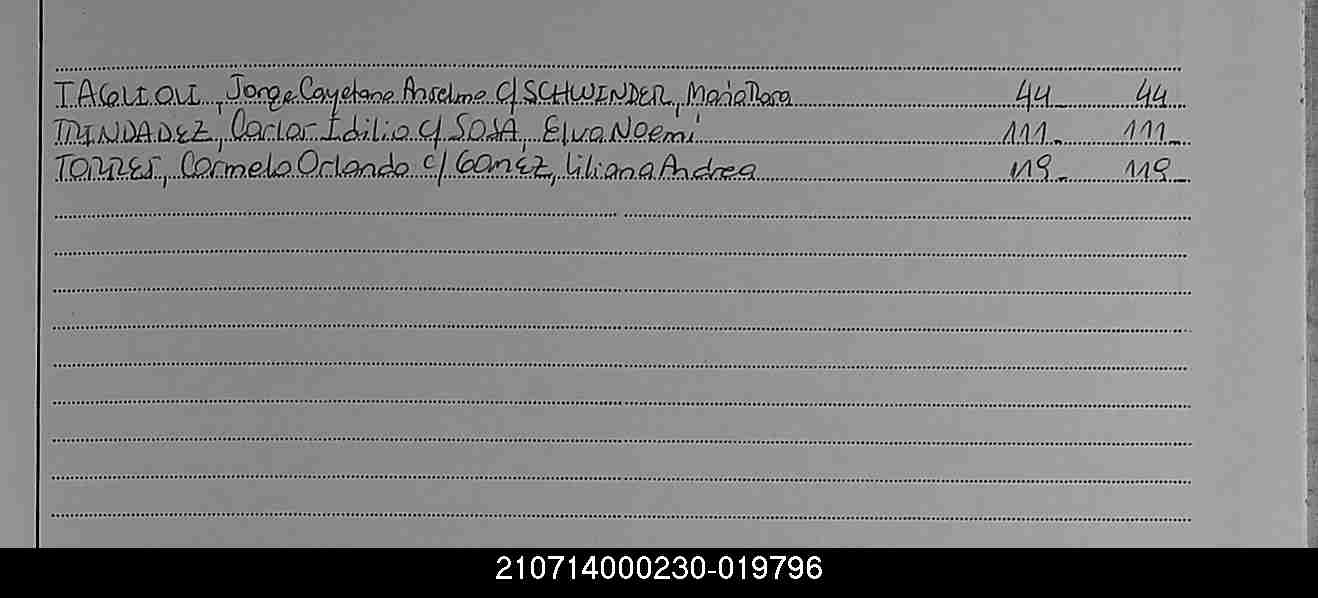 TAGLIOLI, Jorge Cayetano Anselmo c/ SCHWINDER, María Rosa 44 44
TRINDADEZ, Carlos Idilio c/ SOSA, Elva Noemí 111 111
TORRES, Carmelo Orlando c/ GOMEZ, Liliana Andrea 119 119
210714000230-019796